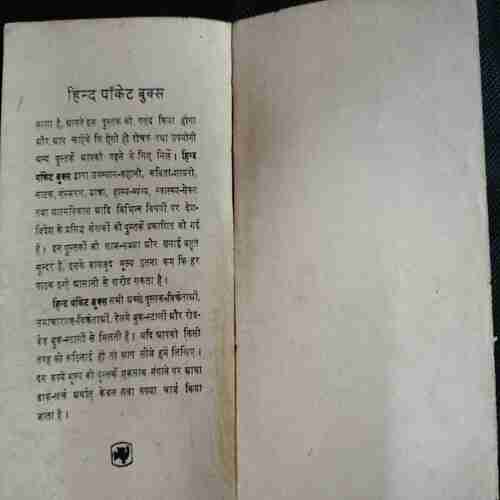 हिन्द पॉकेट बुक्स
आशा है, आपने इस पुस्तक को पसंद किया होगा
और आप चाहेंगे कि ऐसी ही रोचक तथा उपयोगी
अन्य पुस्तकें आपको पढ़ने के लिए मिलें। हिन्द
पॉकेट बुक्स द्वारा उपन्यास-कहानी, कविता-शायरी,
नाटक, संस्मरण, यात्रा, हास्य-व्यंग्य, स्वास्थ्य-सेक्स
तथा आत्मविकास आदि विभिन्न विषयों पर देश-
विदेश के प्रसिद्ध लेखकों की पुस्तकें प्रकाशित की गई
हैं। इन पुस्तकों की साज-सज्जा और छपाई बहुत
सुन्दर है, इसके बावजूद मूल्य इतना कम कि हर
पाठक इन्हें आसानी से खरीद सकता है।
हिन्द पॉकेट बुक्स सभी अच्छे पुस्तक-विक्रेताओं,
समाचारपत्र-विक्रेताओं, रेलवे बुक-स्टालों और रोड-
वेज़ बुक-स्टालों से मिलती हैं। यदि आपको किसी
तरह की कठिनाई हो तो आप सीधे हमें लिखिए।
दस रुपये मूल्य की पुस्तकें एकसाथ मंगाने पर आधा
डाक-खर्च अर्थात् केवल सवा रुपया चार्ज किया
जाता है।